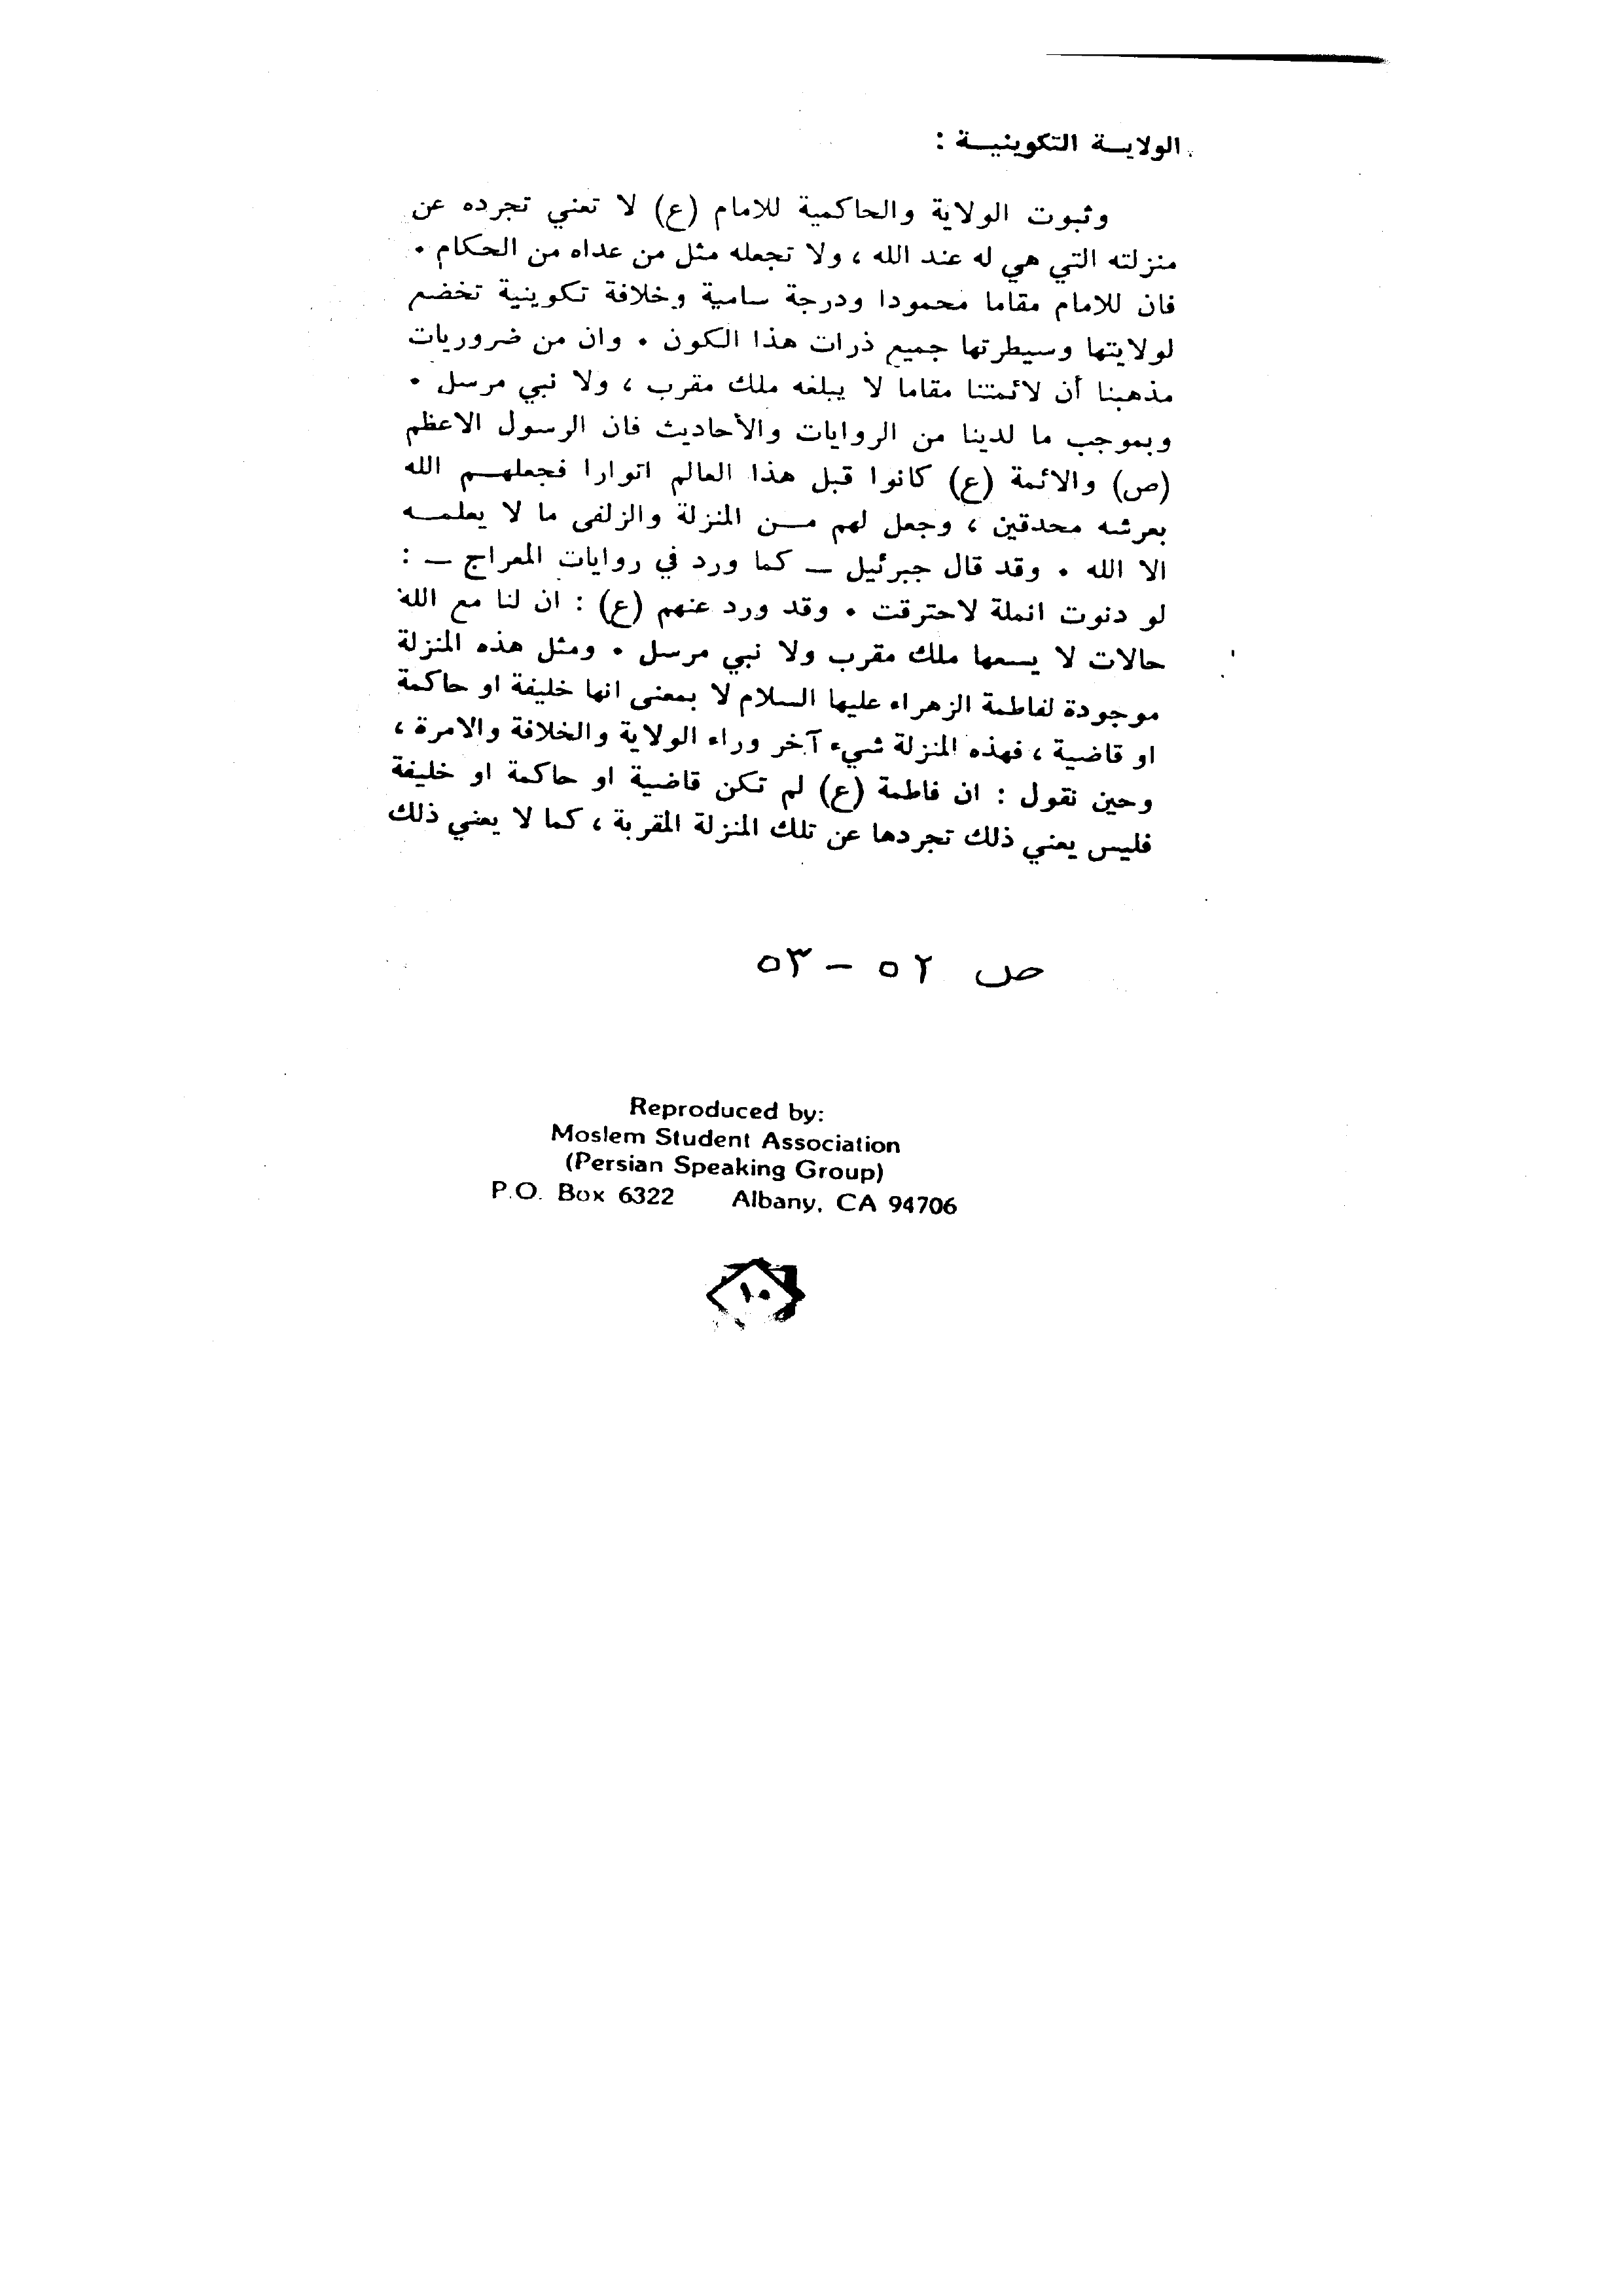 الولايـة التكوينيـة :
وثبوت الولاية والحاكمية للامام (ع) لا تعني تجرده عن
منزلته التي هي له عند الله ، ولا تجعله مثل من عداه من الحكام .
فان للامام مقاما محمودا ودرجة سامية وخلافة تكوينية تخضع
لولايتها وسيطرتها جميع ذرات هذا الكون . وان من ضروريات
مذهبنا أن لائمتنا مقاما لا يبلغه ملك مقرب ، ولا نبي مرسل .
وبموجب ما لدينا من الروايات والأحاديث فان الرسول الاعظم
(ص) والائمة (ع) كانوا قبل هذا العالم انوارا فجعلهـم الله
بعرشه محدقين ، وجعل لهم مـن المنزلة والزلفى ما لا يعلمـه
الا الله . وقد قال جبرئيل ــ كما ورد في روايات المعراج ــ :
لو دنوت انملة لاحترقت . وقد ورد عنهم (ع) : ان لنا مع الله
حالات لا يسعها ملك مقرب ولا نبي مرسل . ومثل هذه المنزلة
موجودة لفاطمة الزهراء عليها السلام لا بمعنى انها خليفة او حاكمة
او قاضية ، فهذه المنزلة شيء آخر وراء الولاية والخلافة والامرة ،
وحين نقول : ان فاطمة (ع) لم تكن قاضية او حاكمة او خليفة
فليس يعني ذلك تجردها عن تلك المنزلة المقربة ، كما لا يعني ذلك
ص ٥٢ - ٥٣
Reproduced by:
Moslem Student Association
(Persian Speaking Group)
P.O. Box 6322 Albany, CA 94706
١٠